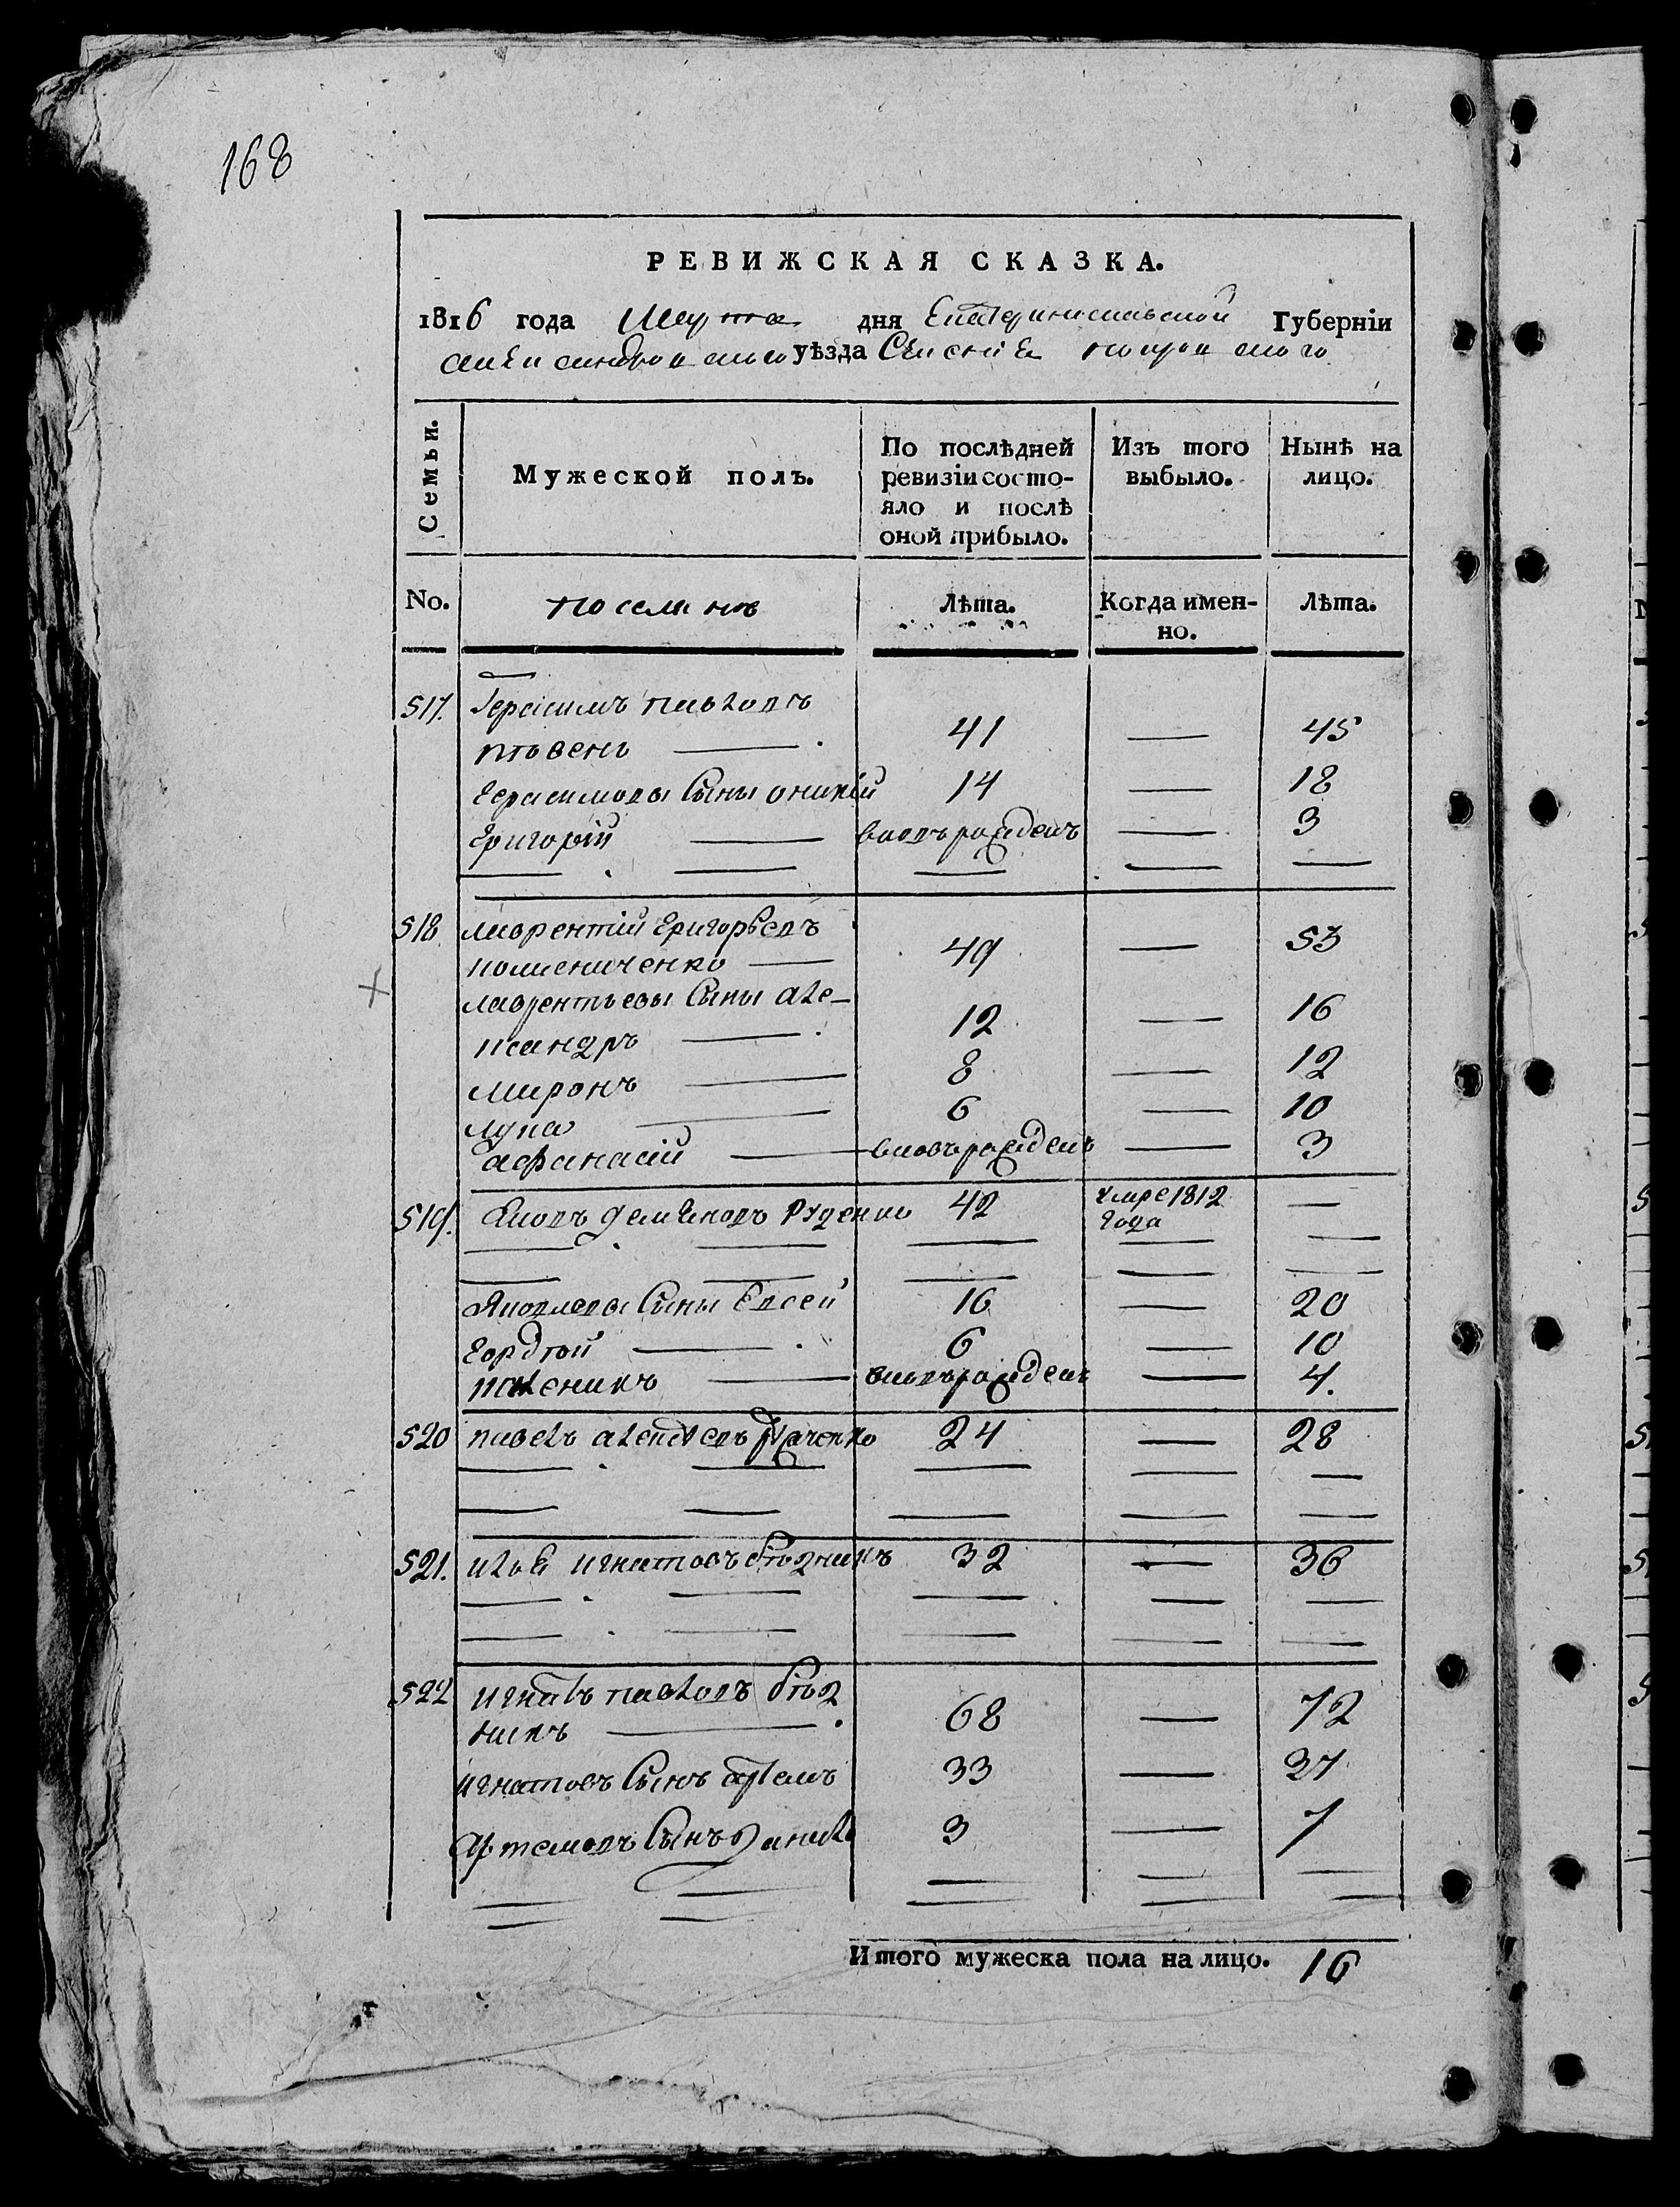 168
РЕВИЖСКАЯ СКАЗКА.
1816 года Марта дня Екатеринославской Губерніи
александровскаго уѣзда Селенія покровскаго
Семьи.
Мужеской полъ.
По послѣдней ревизіи состояло и послѣ оной прибыло.
Изъ того выбыло.
Нынѣ на лицо.
No.
Лѣта.
Когда именно.
Лѣта.
517. Герасимъ павловъ
41 — 45
Герасимовы Сыны оникій 14 — 18
Григорій — вновьрожденъ — 3
518 лаврентій Григорьевъ
49 — 53
лаврентьевы Сыны але-
ксандръ — 12 — 16
миронъ — 8 — 12
лука — 6 — 10
афанасій — вновьрожденъ — 3
519. Яковъ демяновъ Руденко 42 умре 1812 года —
Яковлевы Сыны Евсей 16 — 20
Гордѣй — 6 — 10
— вновьрожденъ — 4.
520 павелъ 24 — 28
521. илья игнатовъ 32 — 36
522 игнатъ павловъ
никъ — 68 — 72
игнатовъ Сынъ артемъ 33 — 37
Артемовъ Сынъ данило 3 — 7
Итого мужеска пола на лицо. 16